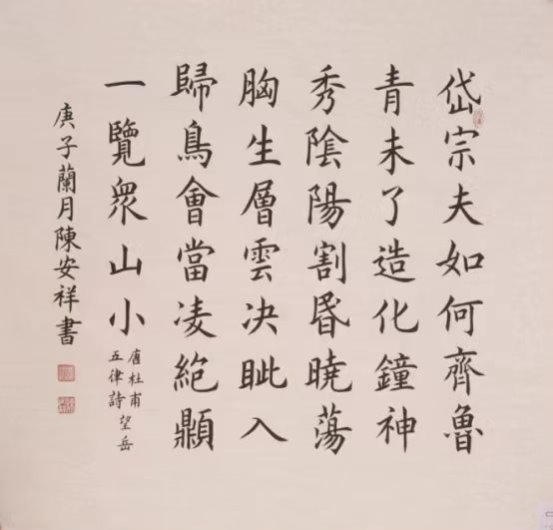 岱宗夫如何齊魯
青未了造化鐘神
秀陰陽割昬曉蕩
胸生層雲决眦入
歸鳥會當凌絶顛
一覽衆山小
唐杜甫
五律詩
望岳
庚子蘭月陳安祥書